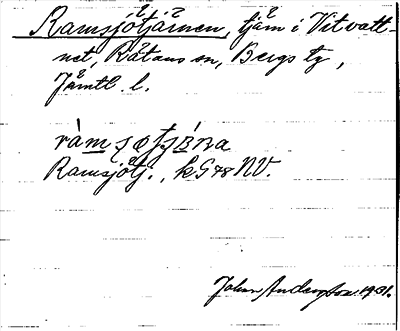 Ramsjötjärnen, tjärn i Vitvatt-
net, Rätans sn, Bergs tg,
Jämtl. l.
Ramsjötj., kG48NV.
John Anderson 1931.